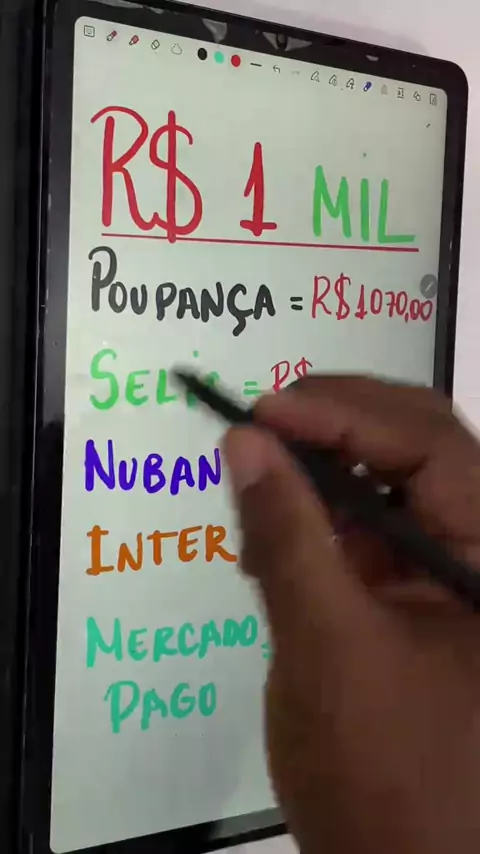 R$ 1 MIL
POUPANÇA = R$1070,00
SELIC = R$
NUBAN
INTER
MERCADO =
PAGO